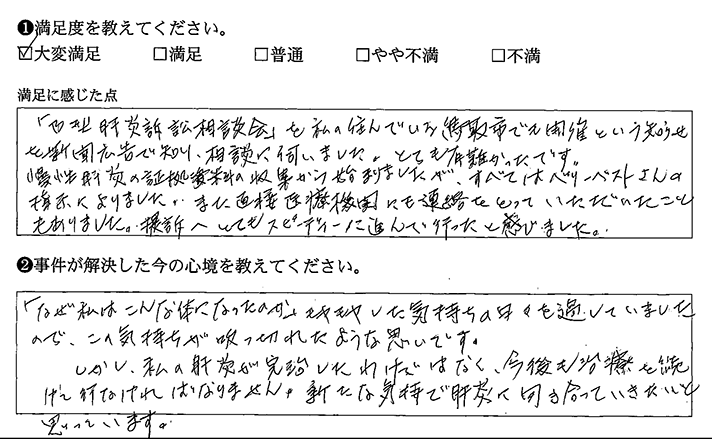 ❶満足度を教えてください。
☑大変満足 □満足 □普通 □やや不満 □不満
満足に感じた点
「B型肝炎訴訟相談会」を私の住んでいる鳥取市でも開催という知らせ
を新聞広告で知り、相談に伺いました。とても有難かったです。
慢性肝炎の証拠資料の収集から始まりましたが、すべてはベリーベストさんの
指示によりました。また直接医療機関にも連絡をとっていただいたこと
もありました。提訴へとてもスピーディーに進んで行ったと感じました。
❷事件が解決した今の心境を教えてください。
「なぜ私はこんな体になったのか」とモヤモヤした気持ちの日々を過していました
ので、この気持ちが吹っ切れたような思いです。
しかし、私の肝炎が完治したわけではなく、今後も治療を続
けて行なければなりません。新たな気持で肝炎に向き合っていきたいと
思っています。